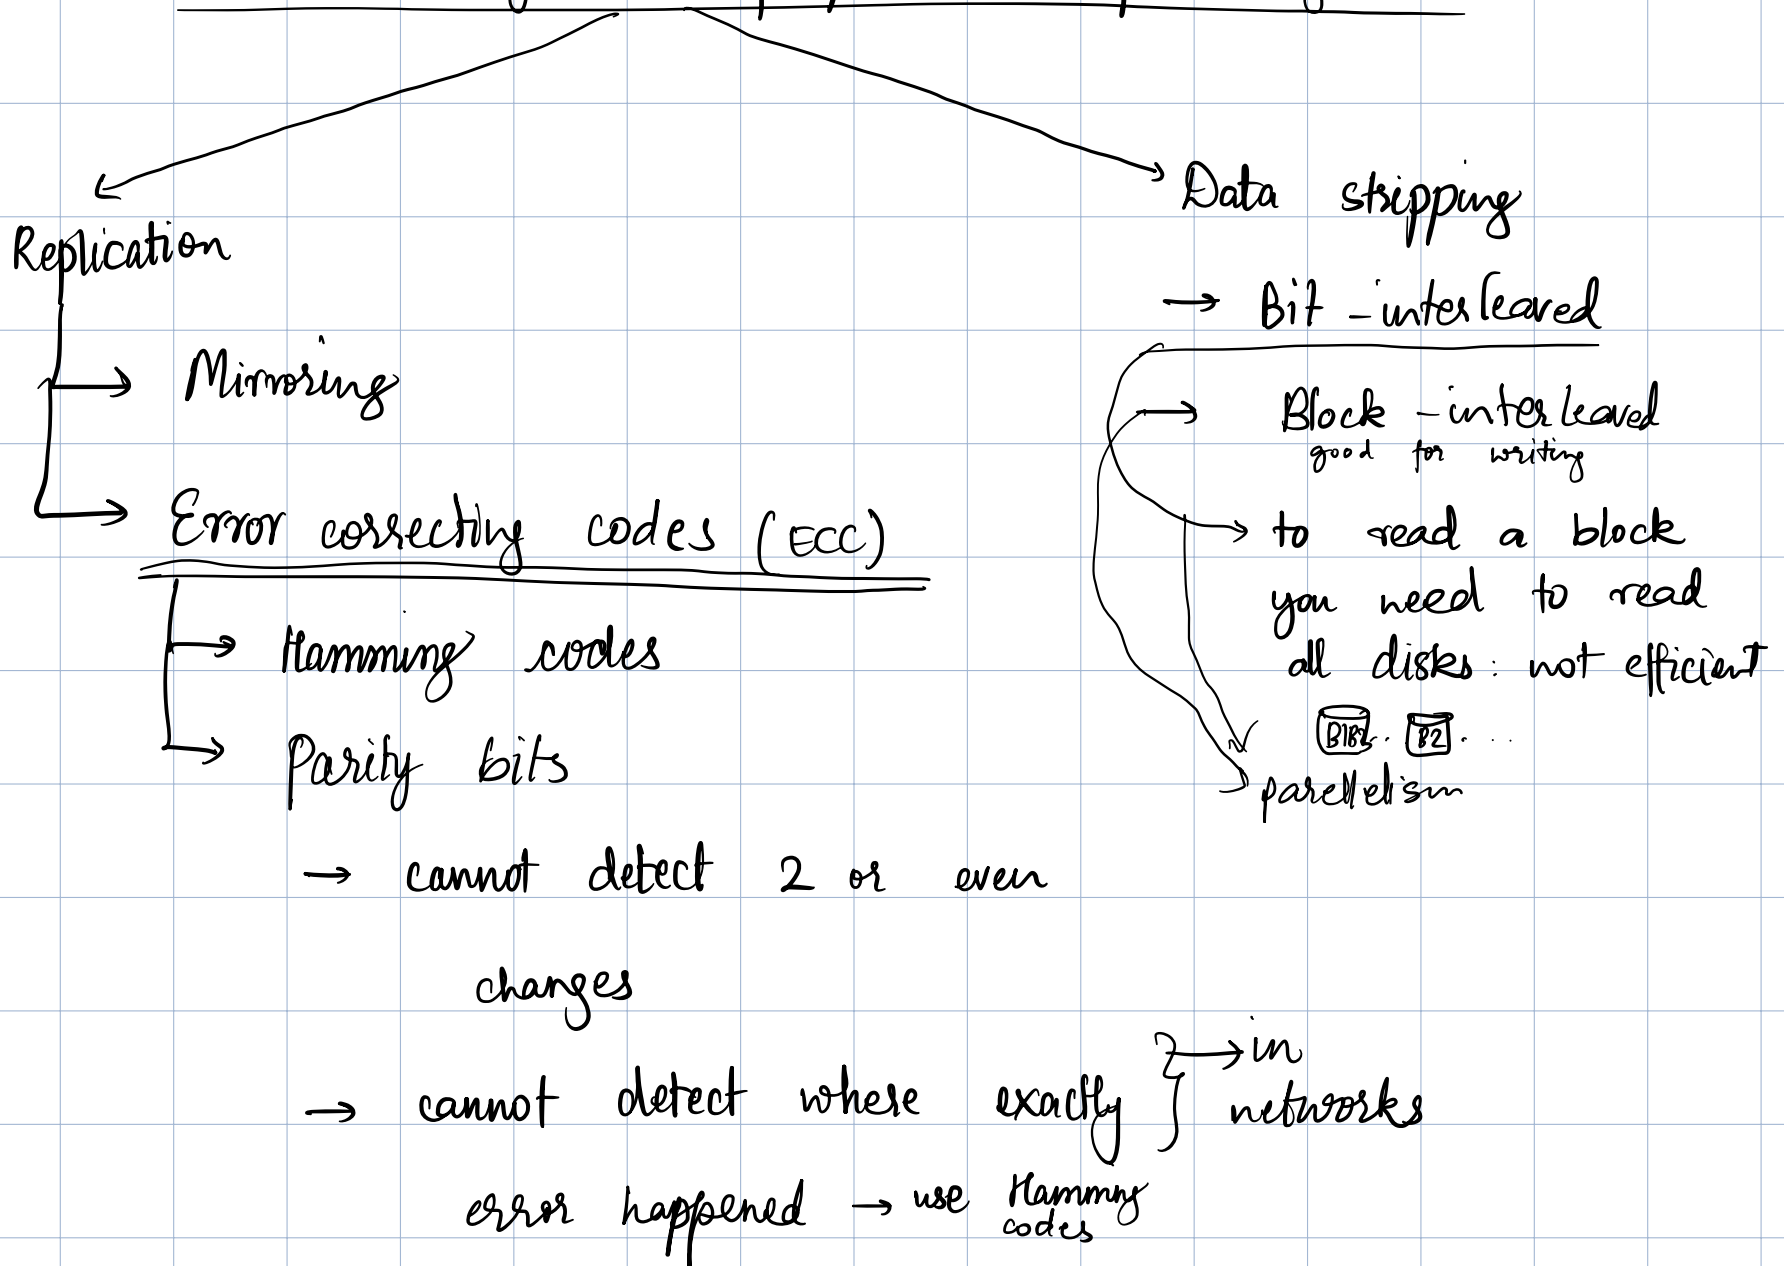 Replication
Mirroring
Error correcting codes (ECC)
Hamming codes
Parity bits
→ cannot detect 2 or even
changes
→ cannot detect where exactly
error happened → use Hamming
codes
} → in
networks
Data stripping
→ Bit - interleaved
→ Block - interleaved
good for writing
→ to read a block
you need to read
all disks : not efficient
B1B2.. B2 . . .
parellelism